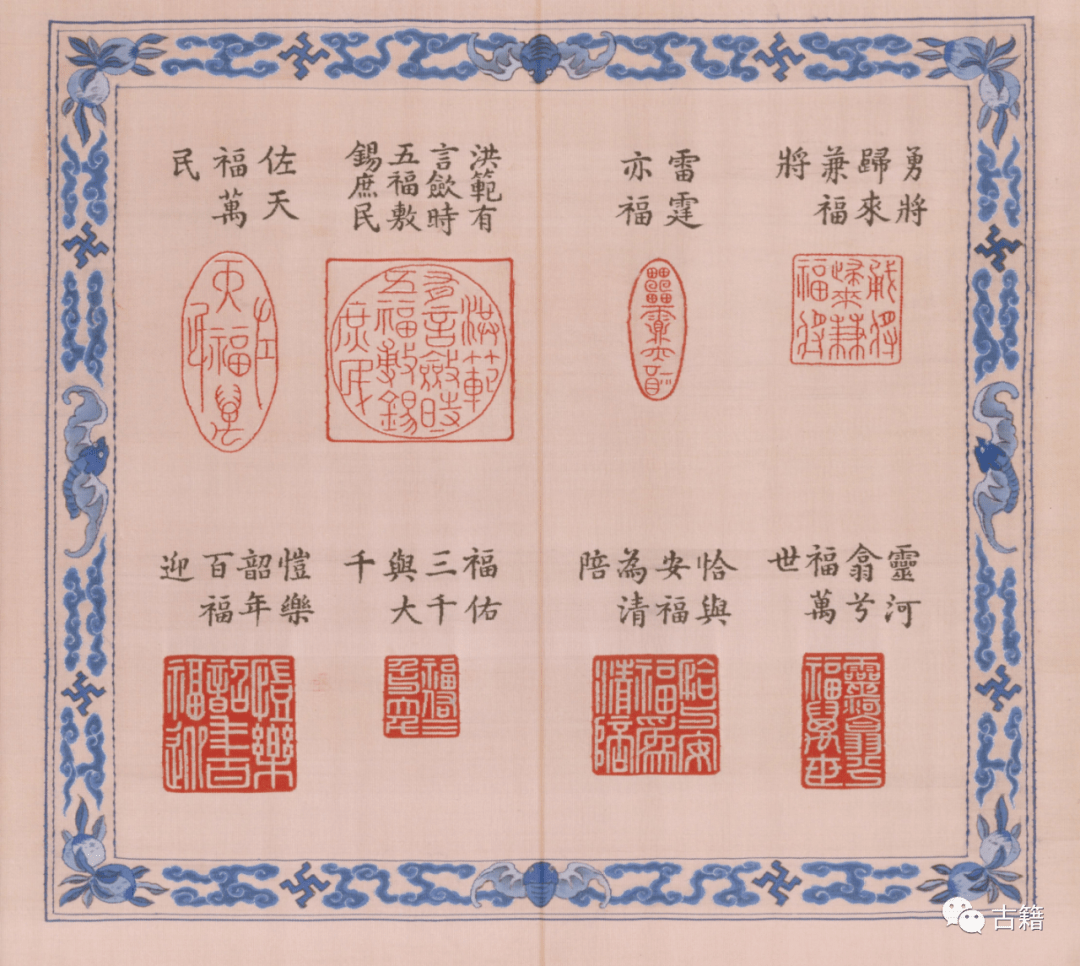 勇將
歸來
兼福
將
雷霆
亦福
洪範有
言斂時
五福敷
錫庶民
佐天
福萬
民
靈河
翕兮
福萬
世
恰與
安福
為清
陪
福佑
三千
與大
千
愷樂
韶年
百福
迎
古籍